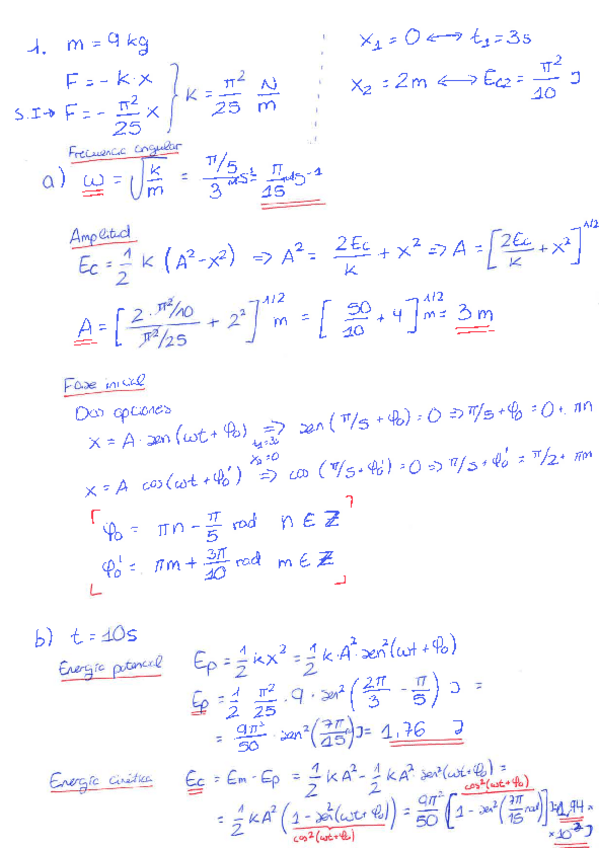 1. m = 9 kg
F = - k · x
S.I → F = - π²/25 x } k = π²/25 N/m
x₁ = 0 ⟷ t₁ = 3s
x₂ = 2m ⟷ Ec₂ = π²/10 J
Frecuencia angular
a) ω = √(k/m) = (π/5)/3 = π/15 s⁻¹
Amplitud
Ec = 1/2 k (A² - x²) ⇒ A² = 2Ec/k + x² ⇒ A = [2Ec/k + x²]^1/2
A = [(2 · π²/10)/(π²/25) + 2²]^1/2 m = [50/10 + 4]^1/2 m = 3 m
Fase inicial
Dos opciones
x = A · sen(ωt + φ₀) ⇒ sen(π/5 + φ₀) = 0 ⇒ π/5 + φ₀ = 0 + πn
t₁=3s
x₁=0
x = A cos(ωt + φ₀') ⇒ cos(π/5 + φ₀') = 0 ⇒ π/5 + φ₀' = π/2 + πm
φ₀ = πn - π/5 rad n ∈ Z
φ₀' = πm + 3π/10 rad m ∈ Z
b) t = 10s
Energía potencial
Ep = 1/2 kx² = 1/2 k · A² · sen²(ωt + φ₀)
Ep = 1/2 π²/25 · 9 · sen²(2π/3 - π/5) J =
= 9π²/50 · sen²(7π/15) J = 1,76 J
Energía cinética
Ec = Em - Ep = 1/2 kA² - 1/2 kA² · sen²(ωt + φ₀) =
cos²(ωt + φ₀)
= 1/2 kA² (1 - sen²(ωt + φ₀)) = 9π²/50 [1 - sen²(7π/15 rad)] J = 1,94 ×
cos²(ωt + φ₀)
× 10⁻² J